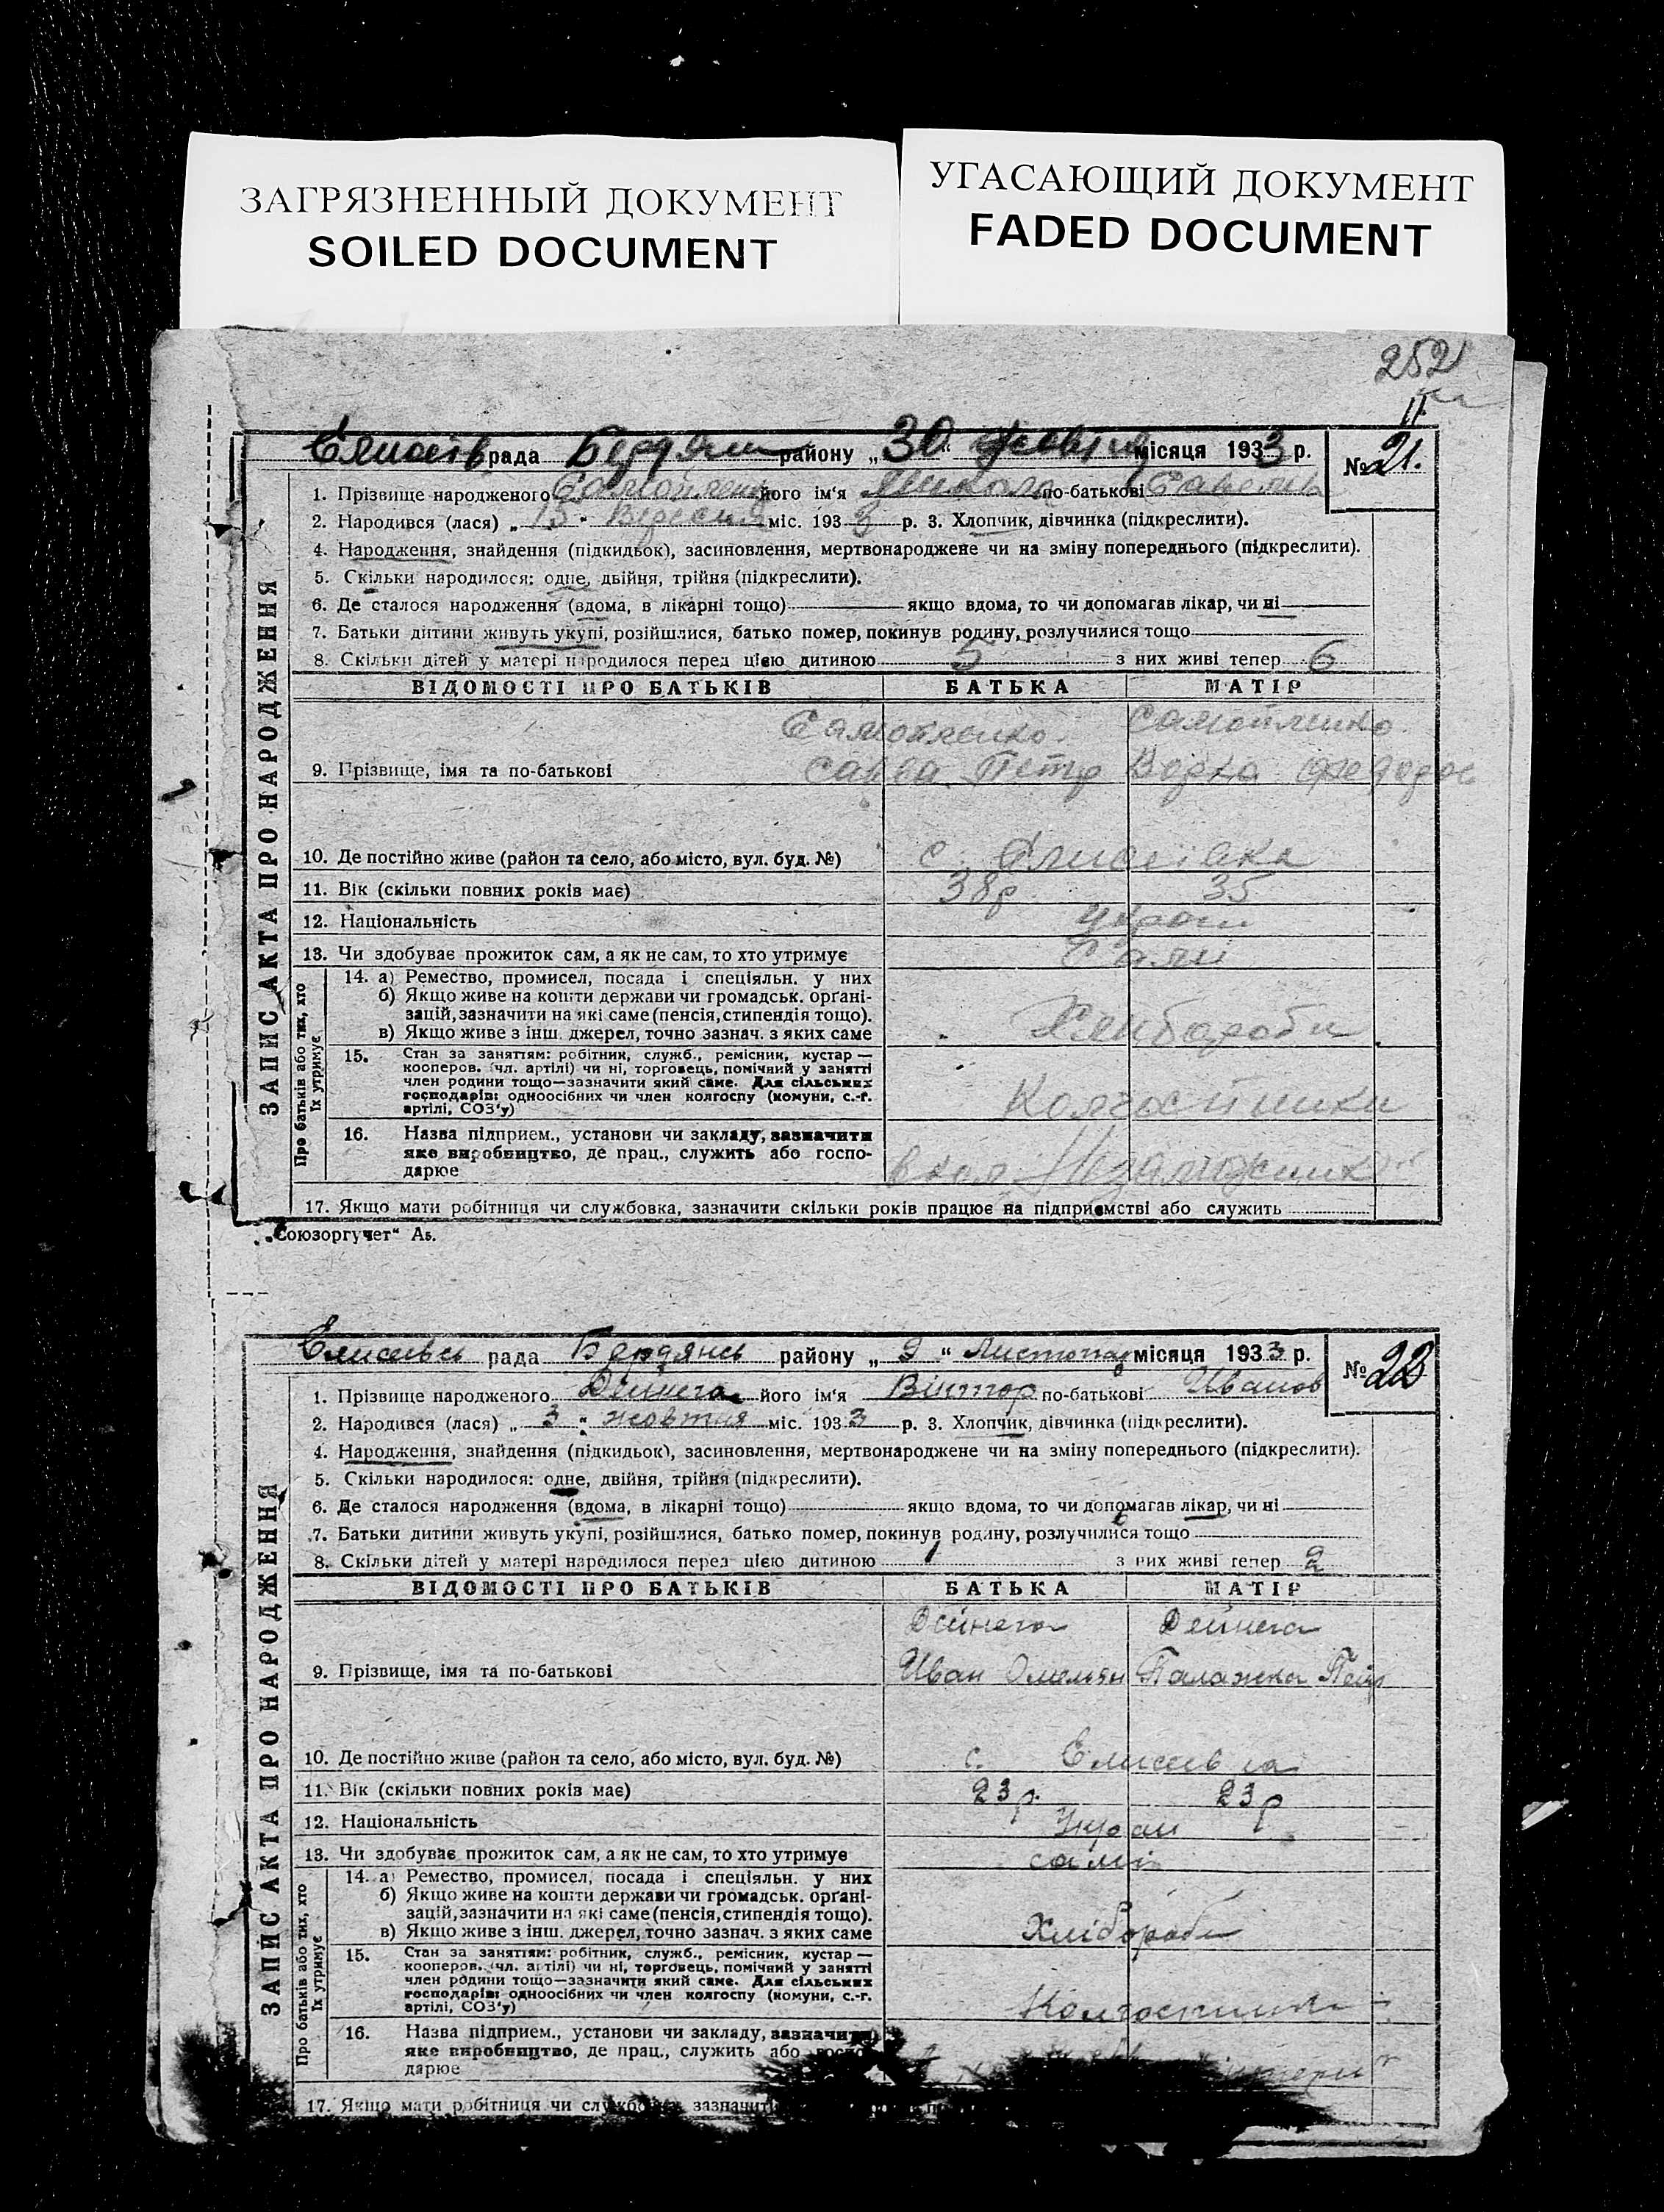 ЗАГРЯЗНЕННЫЙ ДОКУМЕНТ
SOILED DOCUMENT
УГАСАЮЩИЙ ДОКУМЕНТ
FADED DOCUMENT
252
ЗАПИС АКТА ПРО НАРОДЖЕННЯ
Єлисеїв рада Бердян району „30“ жовтня місяця 1933 р. № 21.
1. Прізвище народженого його ім‘я Микола по-батькові
2. Народився (лася) „15“ Вересня міс. 1933 р. 3. Хлопчик, дівчинка (підкреслити).
4. Народження, знайдення (підкидьок), засиновлення, мертвонароджене чи на зміну попереднього (підкреслити).
5. Скільки народилося: одне, двійня, трійня (підкреслити).
6. Де сталося народження (вдома, в лікарні тощо) якщо вдома, то чи допомагав лікар, чи ні
7. Батьки дитини живуть укупі, розійшлися, батько помер, покинув родину, розлучилися тощо
8. Скільки дітей у матері народилося перед цією дитиною 5 з них живі тепер 6
ВІДОМОСТІ ПРО БАТЬКІВ БАТЬКА МАТІР
9. Прізвище, імя та по-батькові Савва Петр
10. Де постійно живе (район та село, або місто, вул. буд. №) с. Єлисеївка
11. Вік (скільки повних років має) 38р 35
12. Національність україн
13. Чи здобуває прожиток сам, а як не сам, то хто утримує Сами
Про батьків або тих, хто їх утримує
14. а) Ремество, промисел, посада і спеціяльн. у них
б) Якщо живе на кошти держави чи громадськ. орґані-
зацій, зазначити на які саме (пенсія, стипендія тощо).
в) Якщо живе з інш. джерел, точно зазнач. з яких саме Хлибороби
15. Стан за заняттям: робітник, служб., ремісник, кустар —
кооперов. (чл. артілі) чи ні, торговець, помічний у занятті
член родини тощо—зазначити який саме. Для сільських
господарів: одноосібних чи член колгоспу (комуни, с.-г.
артілі, СОЗ‘у) Колгоспники
16. Назва підприєм., установи чи закладу, зазначити
яке виробництво, де прац., служить або госпо-
дарює Незаможник
17. Якщо мати робітниця чи службовка, зазначити скільки років працює на підприємстві або служить
„Союзоргучет“ Аь.
ЗАПИС АКТА ПРО НАРОДЖЕННЯ
Єлисеївсь рада Бердянсь району „9“ Листопад місяця 1933 р. № 22
1. Прізвище народженого Дейнега його ім‘я Віктор по-батькові Иванов
2. Народився (лася) „3“ жовтня міс. 1933 р. 3. Хлопчик, дівчинка (підкреслити).
4. Народження, знайдення (підкидьок), засиновлення, мертвонароджене чи на зміну попереднього (підкреслити).
5. Скільки народилося: одне, двійня, трійня (підкреслити).
6. Де сталося народження (вдома, в лікарні тощо) якщо вдома, то чи допомагав лікар, чи ні
7. Батьки дитини живуть укупі, розійшлися, батько помер, покинув родину, розлучилися тощо
8. Скільки дітей у матері народилося перед цією дитиною 1 з них живі тепер 2
ВІДОМОСТІ ПРО БАТЬКІВ БАТЬКА МАТІР
Дейнега Дейнега
9. Прізвище, імя та по-батькові Иван Омельян Палажка Петр
10. Де постійно живе (район та село, або місто, вул. буд. №) с. Елисеівка
11. Вік (скільки повних років має) 23р. 23р
12. Національність Украи
13. Чи здобуває прожиток сам, а як не сам, то хто утримує самі
Про батьків або тих, хто їх утримує
14. а) Ремество, промисел, посада і спеціяльн. у них
б) Якщо живе на кошти держави чи громадськ. орґані-
зацій, зазначити на які саме (пенсія, стипендія тощо).
в) Якщо живе з інш. джерел, точно зазнач. з яких саме Хлібороби
15. Стан за заняттям: робітник, служб., ремісник, кустар —
кооперов. (чл. артілі) чи ні, торговець, помічний у занятті
член родини тощо—зазначити який саме. Для сільських
господарів: одноосібних чи член колгоспу (комуни, с.-г.
артілі, СОЗ‘у) Колгоспники
16. Назва підприєм., установи чи закладу, зазначити
яке виробництво, де прац., служить або
дарює
17. Якщо мати робітниця чи